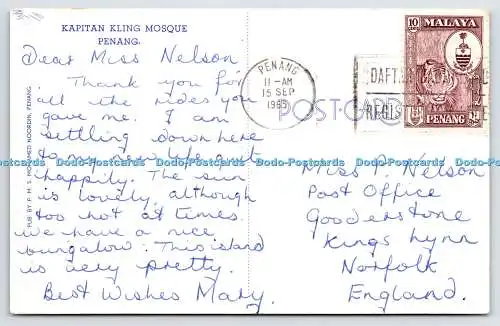 KAPITAN KLING MOSQUE
PENANG.
Dear Miss Nelson
Thank you for
all the rides you
gave me. I am
settling down here
to my new life most
happily. The sun
is lovely, although
too hot at times.
We have a nice
bungalow. This island
is very pretty.
Best Wishes Mary.
PUB BY P. M. S. MOHAMED NOORDIN, PENANG.
PENANG
11-AM
15 SEP
1965
DAFTAR
REGIS
POSTCARD
10
CENTS
MALAYA
PENANG
Postcards Does-Postcards Does-Postcards Does-Postcards Does-Postcards Does-Postcards
Miss P. Nelson
Post Office
Gooderstone
Kings Lynn
Norfolk
England.